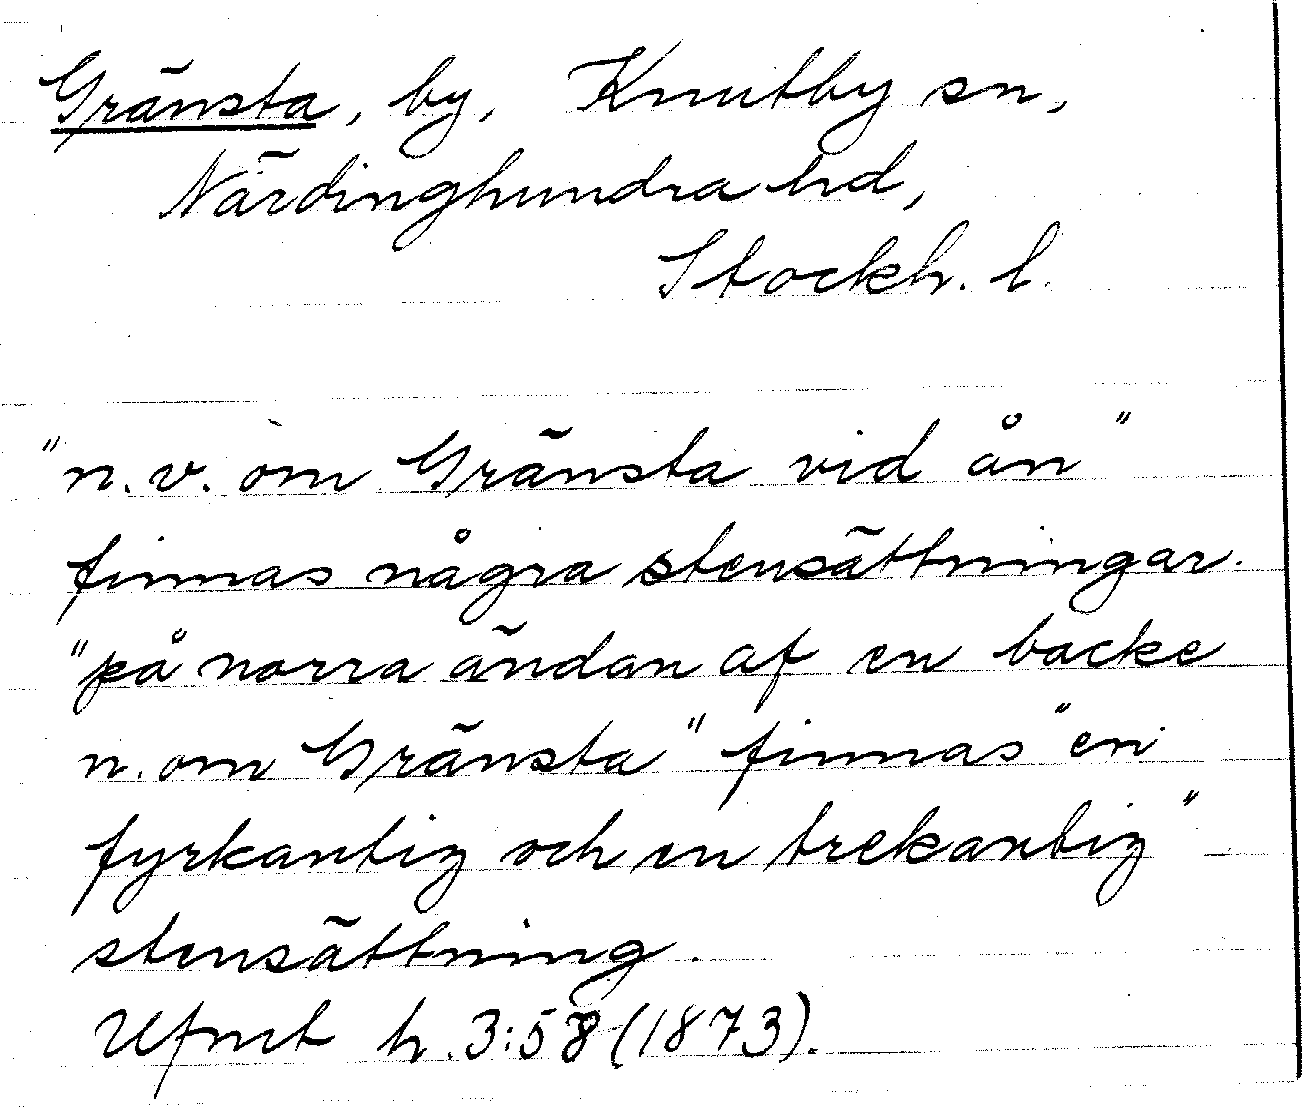 Gränsta, by, Knutby sn,
Närdinghundra hd,
Stockh. l.
"n.v. om Gränsta vid ån"
finnas några stensättningar.
"på norra ändan af en backe
n. om Gränsta" finnas "en
fyrkantig och en trekantig"
stensättning.
Ufmt h. 3:58 (1873).